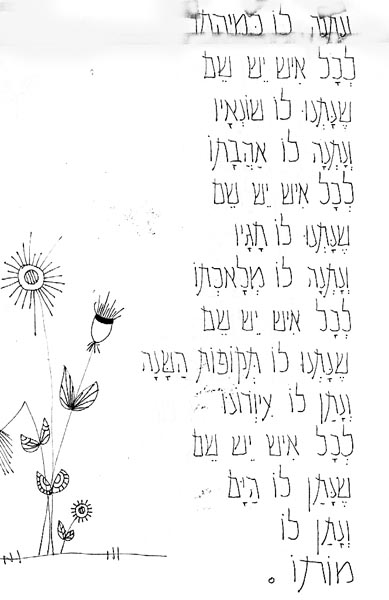 וְנָתְנָה לוֹ כְּמִיהָתוֹ
לְכָל אִישׁ יֵשׁ שֵׁם
שֶׁנָּתְנוּ לוֹ שׂוֹנְאָיו
וְנָתְנָה לוֹ אַהֲבָתוֹ
לְכָל אִישׁ יֵשׁ שֵׁם
שֶׁנָּתְנוּ לוֹ חַגָּיו
וְנָתְנָה לוֹ מְלַאכְתּוֹ
לְכָל אִישׁ יֵשׁ שֵׁם
שֶׁנָּתְנוּ לוֹ תְּקוּפוֹת הַשָּׁנָה
וְנָתַן לוֹ עִוְרוֹנוֹ
לְכָל אִישׁ יֵשׁ שֵׁם
שֶׁנָּתַן לוֹ הַיָּם
וְנָתַן לוֹ
מוֹתוֹ.